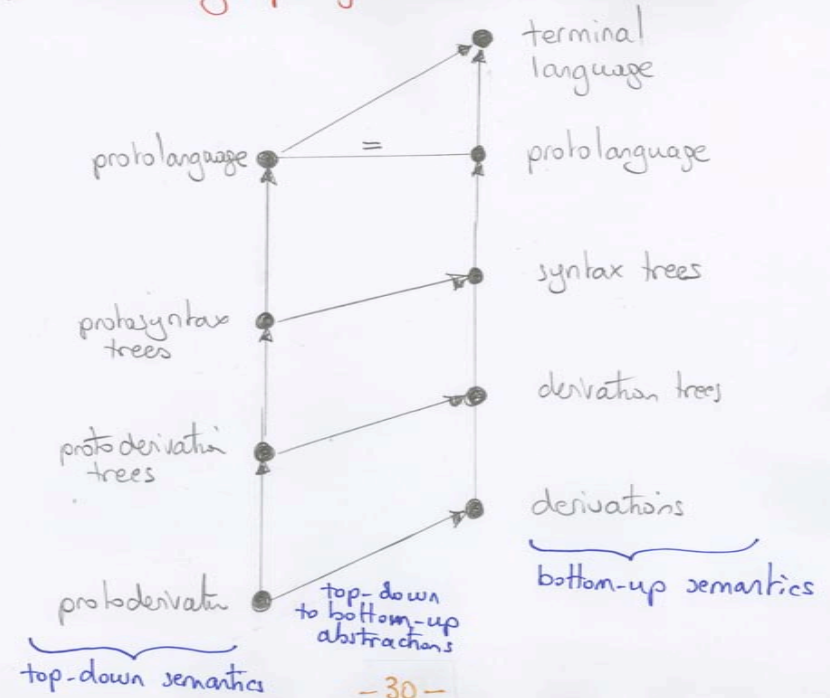 terminal
language
protolanguage
=
protolanguage
syntax trees
protosyntax
trees
derivation trees
protoderivation
trees
derivations
bottom-up semantics
protoderivatn
top-down
to bottom-up
abstractions
top-down semantics
-30-